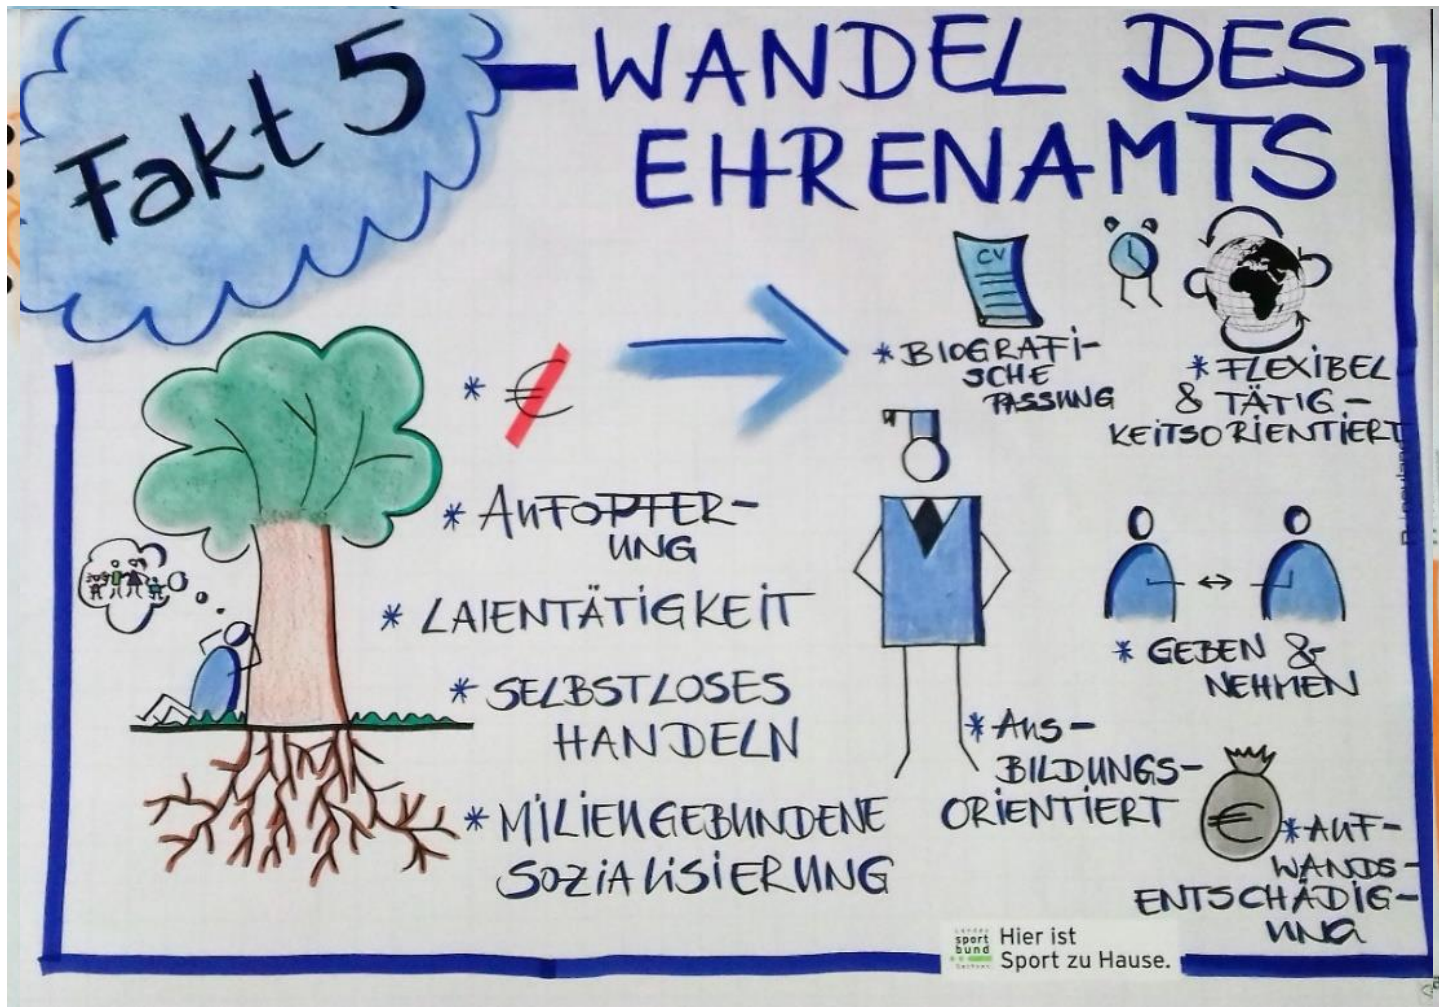 Fakt 5
WANDEL DES
EHRENAMTS
* €
* AUFOPFER-
UNG
* LAIENTÄTIGKEIT
* SELBSTLOSES
HANDELN
* MILIEUGEBUNDENE
SOZIALISIERUNG
CV
* BIOGRAFI-
SCHE
PASSUNG
* FLEXIBEL
& TÄTIG-
KEITSORIENTIERT
* GEBEN &
NEHMEN
* AUS-
BILDUNGS-
ORIENTIERT
€
* AUF-
WANDS-
ENTSCHÄDIG-
UNG
Landes
sport
bund
Sachsen
Hier ist
Sport zu Hause.